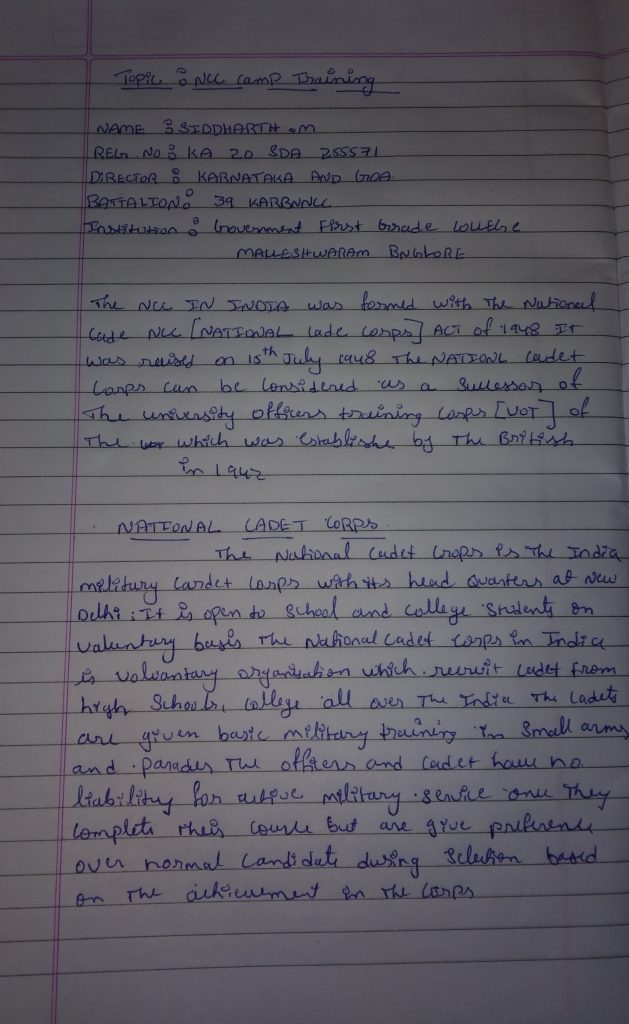 Topic : NCC Camp Training
NAME : SIDDHARTH .M
REG. NO : KA 20 SDA 255571
DIRECTOR : KARNATAKA AND GOA
BATTALION : 39 KARBNNCC
Institution : Government First Grade COLLEGE
MALLESHWARAM BNGLORE
The NCC IN INDIA was formed with The National
Cade NCC [NATIONAL Cade Corps] ACT of 1948 It
was raised on 15th July 1948 The NATIONL Cadet
Corps can be Considered as a Sucessor of
The university officers training Corps [UOT] of
The which was Establishe by The British
in 1942
NATIONAL CADET CORPS
The National Cadet Crops is The India
military Cardet Corps with its head Quarters at New
Delhi : It is open to School and College Students on
Valuntary basis The National Cadet Corps in India
is volvantary organisation which recruit Cadet from
high Schools, College all over The India The Cadets
are given basic military training in Small arms
and Parades The officers and Cadet have no
liability for active military service once They
Complete their Course but are give preference
over normal Candidate during Selection based
on The achievement in The Corps